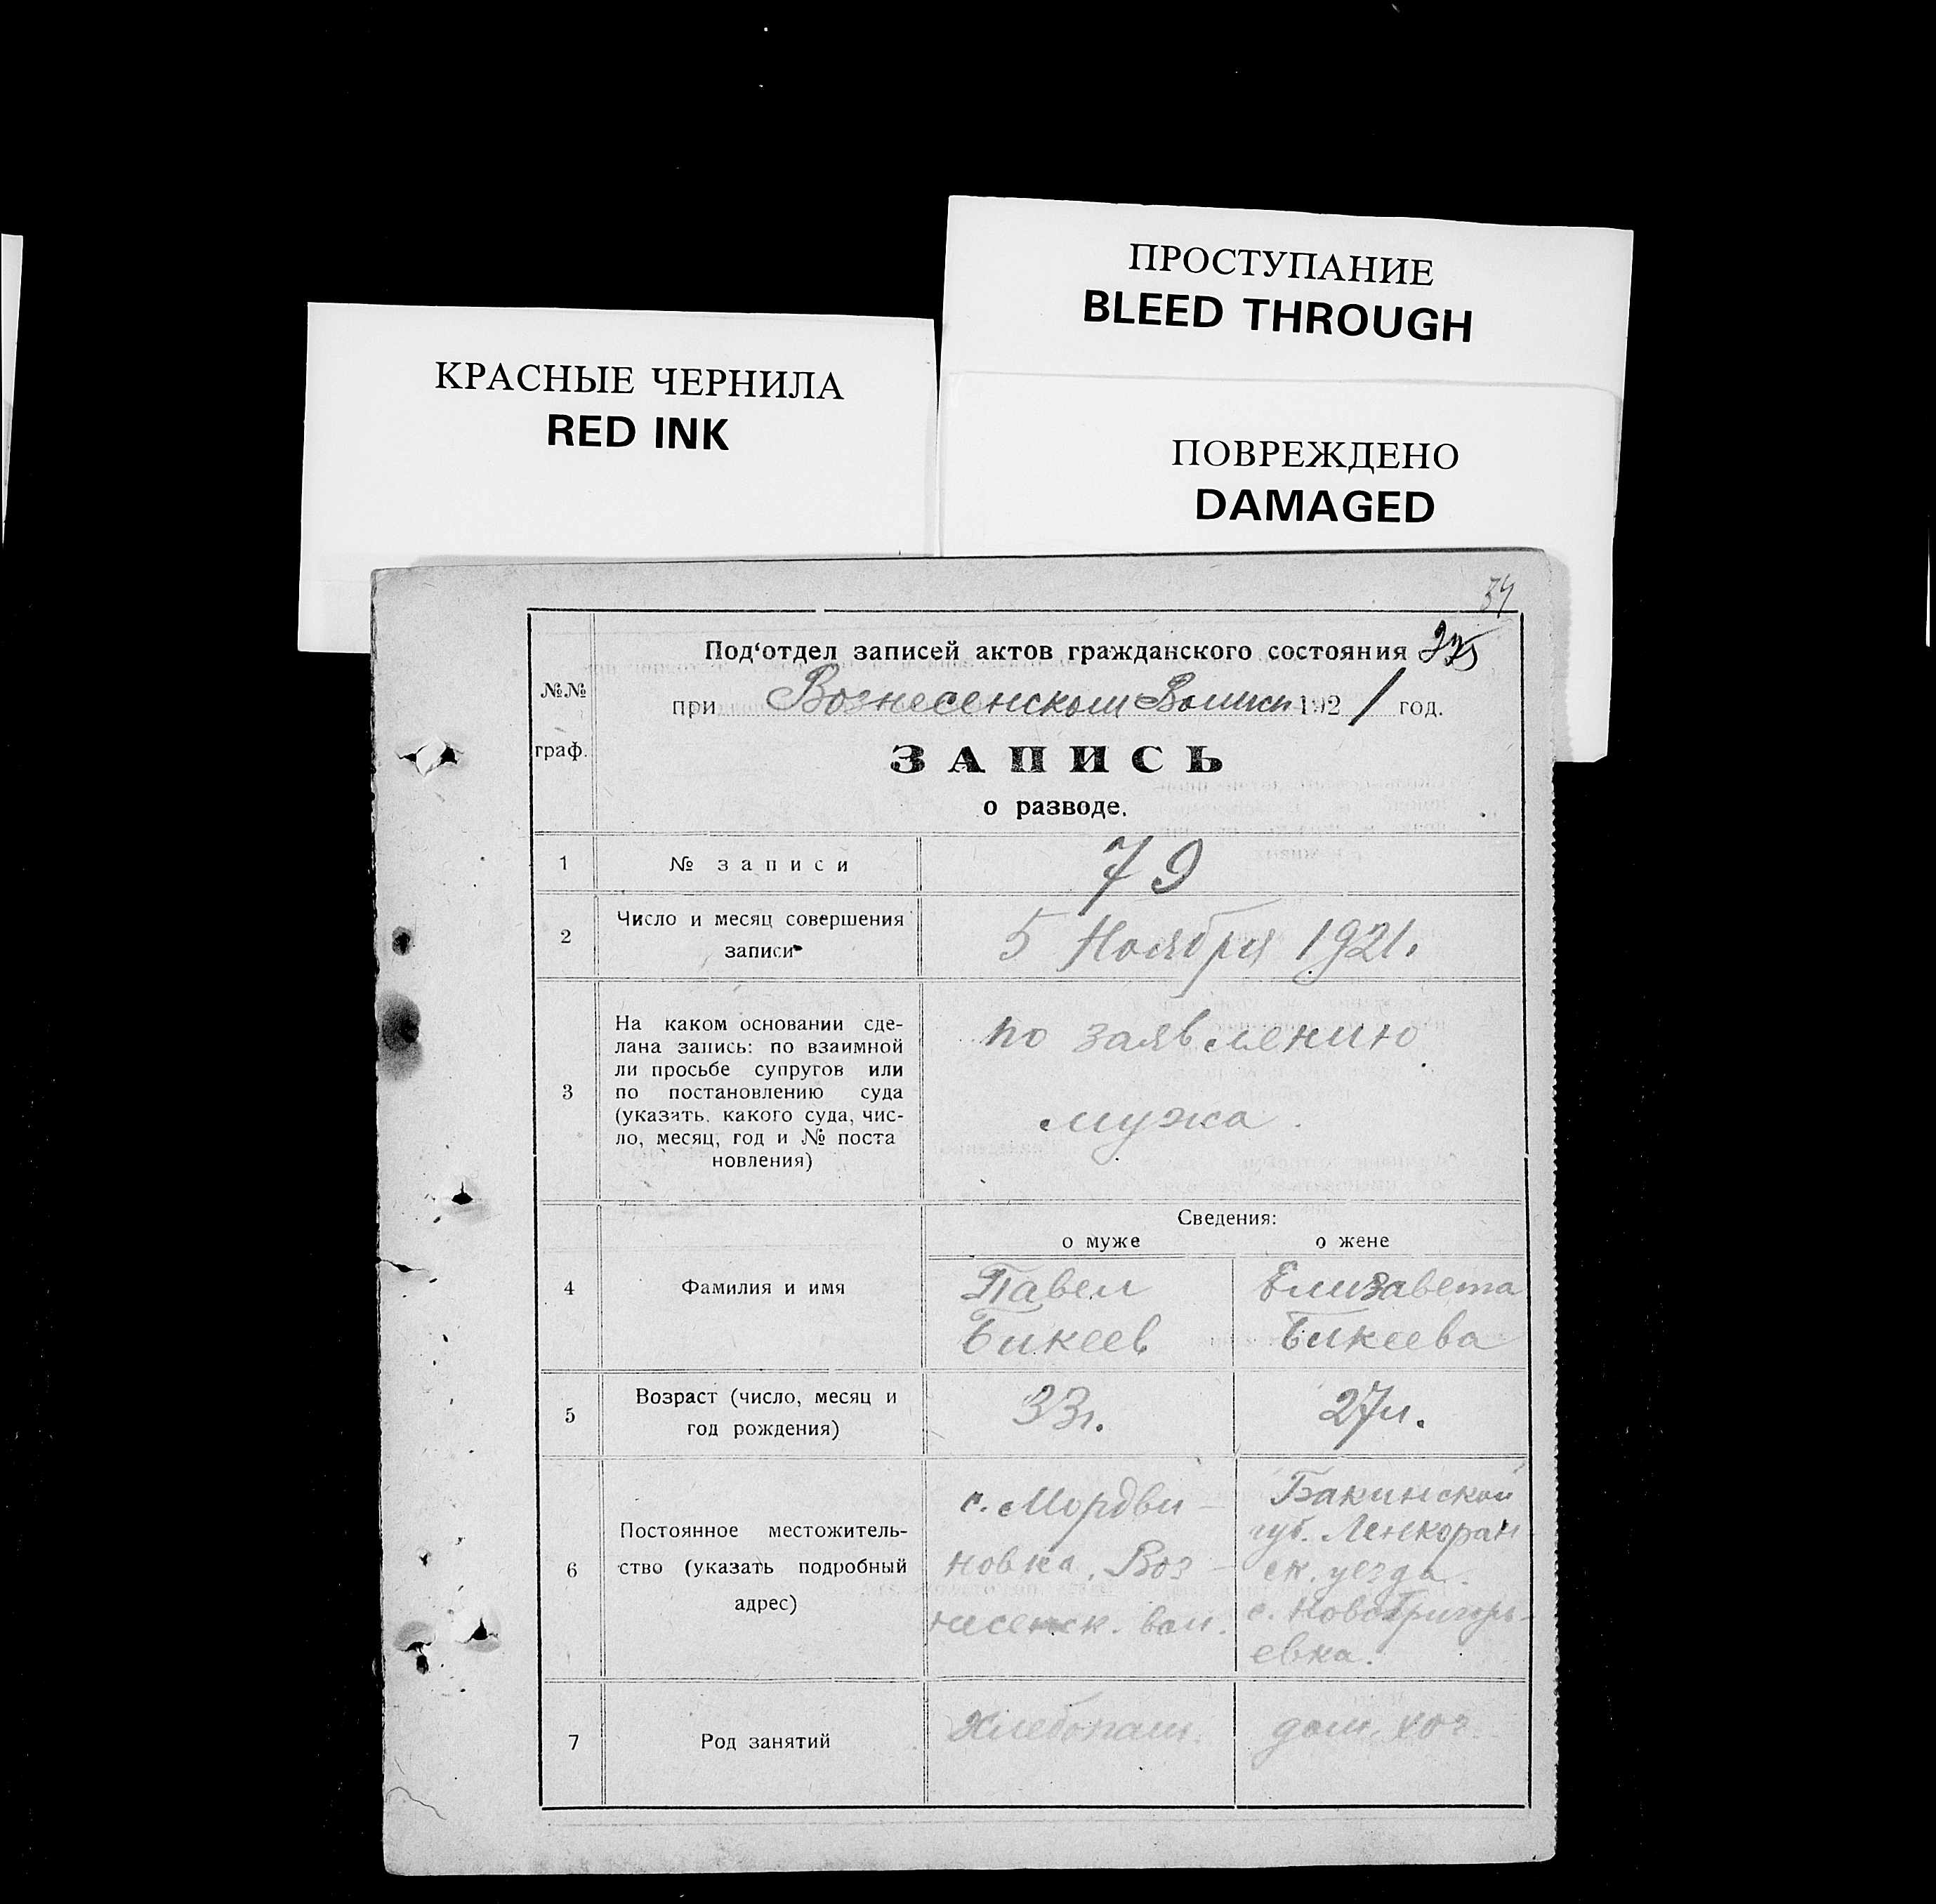 ПРОСТУПАНИЕ
BLEED THROUGH
КРАСНЫЕ ЧЕРНИЛА
RED INK
ПОВРЕЖДЕНО
DAMAGED
34
Под'отдел записей актов гражданского состояния
при Вознесенском 1921 год.
№№
граф.
ЗАПИСЬ
о разводе.
1 № записи 79
2 Число и месяц совершения
записи 5 Ноября 1921.
3 На каком основании сде-
лана запись: по взаимной
ли просьбе супругов или
по постановлению суда
(указать, какого суда, чис-
ло, месяц, год и № поста
новления)
по заявлению
мужа.
Сведения:
о муже о жене
4 Фамилия и имя
Павел
Бикеев
Елизавета
Бикеева
5 Возраст (число, месяц и
год рождения)
33г.
27л.
6 Постоянное местожитель-
ство (указать подробный
адрес)
с. Мордви-
новка, Воз-
несенск. вол.
Бакинской
губ. Ленкоран-
ск. уезда.
с. НовоГригорь-
евка.
7 Род занятий
Хлебопаш.
дом. хоз.